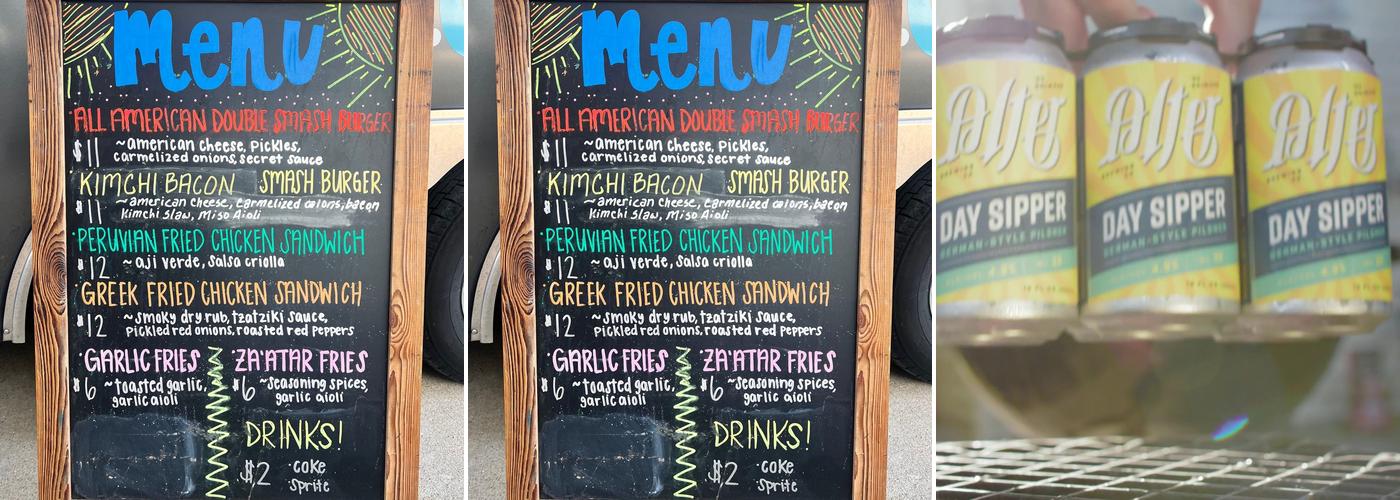 Menu
ALL AMERICAN DOUBLE SMASH BURGER
$11 ~american cheese, pickles,
carmelized onions, secret sauce
KIMCHI BACON SMASH BURGER
$11 ~american cheese, carmelized onions, bacon
Kimchi Slaw, Miso Aioli
PERUVIAN FRIED CHICKEN SANDWICH
$12 ~aji verde, salsa criolla
GREEK FRIED CHICKEN SANDWICH
$12 ~smoky dry rub, tzatziki sauce,
pickled red onions, roasted red peppers
GARLIC FRIES
$6 ~toasted garlic,
garlic aioli
ZA'ATAR FRIES
$6 ~seasoning spices,
garlic aioli
DRINKS!
$2 ·coke
·sprite
Menu
ALL AMERICAN DOUBLE SMASH BURGER
$11 ~american cheese, pickles,
carmelized onions, secret sauce
KIMCHI BACON SMASH BURGER
$11 ~american cheese, carmelized onions, bacon
Kimchi Slaw, Miso Aioli
PERUVIAN FRIED CHICKEN SANDWICH
$12 ~aji verde, salsa criolla
GREEK FRIED CHICKEN SANDWICH
$12 ~smoky dry rub, tzatziki sauce,
pickled red onions, roasted red peppers
GARLIC FRIES
$6 ~toasted garlic,
garlic aioli
ZA'ATAR FRIES
$6 ~seasoning spices,
garlic aioli
DRINKS!
$2 ·coke
·sprite
Alter
BREWING
DAY SIPPER
GERMAN-STYLE PILSNER
Alter
BREWING
DAY SIPPER
GERMAN-STYLE PILSNER
Alter
BREWING
DAY SIPPER
GERMAN-STYLE PILSNER